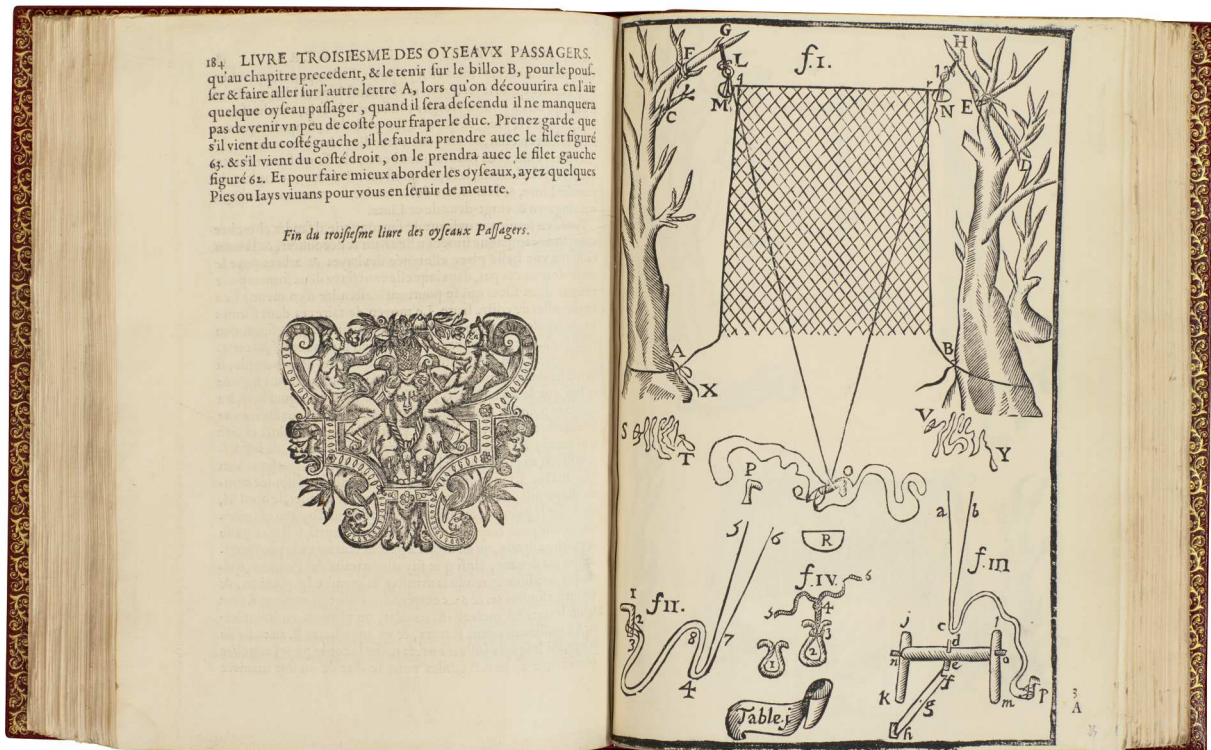 184 LIVRE TROISIESME DES OYSEAVX PASSAGERS.
qu'au chapitre precedent, & le tenir ſur le billot B, pour le pouſ-
ſer & faire aller ſur l'autre lettre A, lors qu'on découurira en l'air
quelque oyſeau paſſager, quand il ſera deſcendu il ne manquera
pas de venir vn peu de coſté pour fraper le duc. Prenez garde que
s'il vient du coſté gauche, il le faudra prendre auec le filet figuré
63. & s'il vient du coſté droit, on le prendra auec le filet gauche
figuré 62. Et pour faire mieux aborder les oyſeaux, ayez quelques
Pies ou Iays viuans pour vous en ſeruir de meutte.
Fin du troiſieſme liure des oyſeaux Paſſagers.
G
H
F
L
f.I.
M
N
C
E
D
A
B
X
V
S
T
Y
P
O
R
a b
5 6
f.III
f.IV.
1
fII.
2
3
8 7
4
5 6
4
3
1 2
c
j l
d
n o
e
f
k m
p
g
h
Table.j
3
A